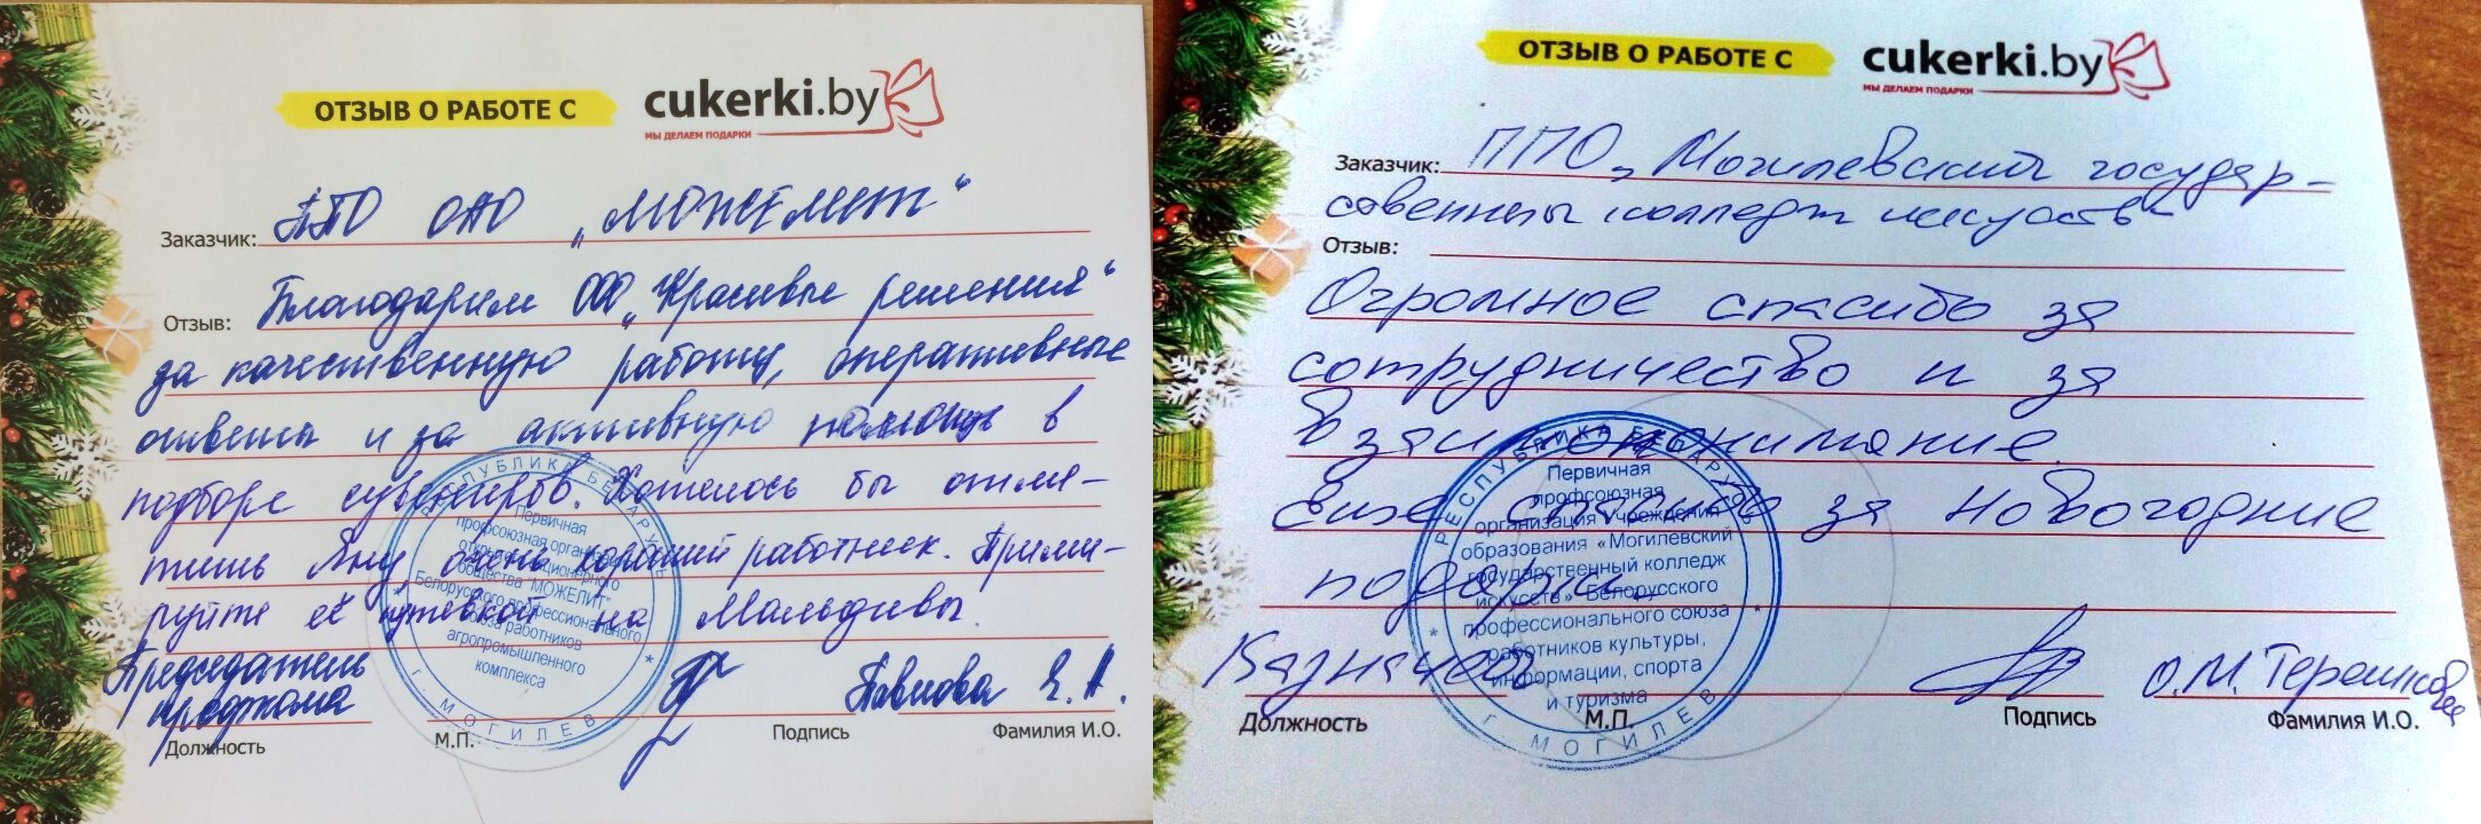 ОТЗЫВ О РАБОТЕ С
cukerki.by
МЫ ДЕЛАЕМ ПОДАРКИ
Заказчик: ППО ОАО „МОЖЕЛИТ“
Отзыв: Благодарим ООО „Красивые решения“
за качественную работу, оперативные
ответы и за активную помощь в
подборе сувениров. Хотелось бы отме-
тить Яну, очень хороший работник. Преми-
руйте её путёвкой на Мальдивы.
Председатель
профкома
Павлова Е.А.
Должность М.П. Подпись Фамилия И.О.
РЕСПУБЛИКА БЕЛАРУСЬ
Первичная
профсоюзная организация
открытого акционерного
общества "МОЖЕЛИТ"
Белорусского профессионального
союза работников
агропромышленного
комплекса
* г. МОГИЛЕВ *
ОТЗЫВ О РАБОТЕ С
cukerki.by
МЫ ДЕЛАЕМ ПОДАРКИ
Заказчик: ППО „Могилевский государ-
ственный колледж искусств“
Отзыв:
Огромное спасибо за
сотрудничество и за
взаимопонимание.
Еще спасибо за новогодние
подарки.
Казначей О.М. Терешкова
Должность М.П. Подпись Фамилия И.О.
РЕСПУБЛИКА БЕЛАРУСЬ
Первичная
профсоюзная
организация Учреждения
образования «Могилевский
государственный колледж
искусств» Белорусского
профессионального союза
работников культуры,
информации, спорта
и туризма
* г. МОГИЛЕВ *